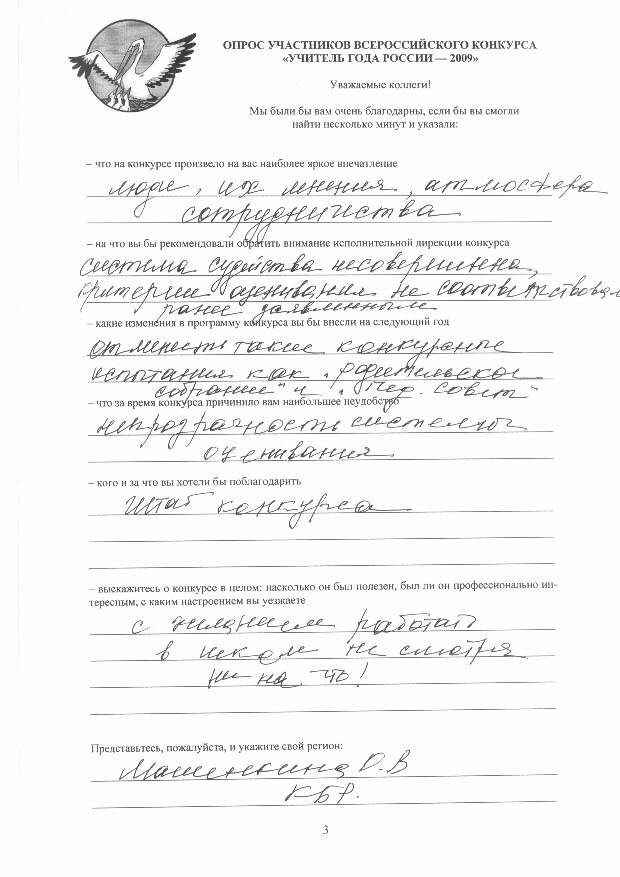 ОПРОС УЧАСТНИКОВ ВСЕРОССИЙСКОГО КОНКУРСА
«УЧИТЕЛЬ ГОДА РОССИИ — 2009»
Уважаемые коллеги!
Мы были бы вам очень благодарны, если бы вы смогли
найти несколько минут и указали:
– что на конкурсе произвело на вас наиболее яркое впечатление
люди, их мнения, атмосфера
сотрудничества
– на что вы бы рекомендовали обратить внимание исполнительной дирекции конкурса
система судейства несовершенна,
критерии оценивания не соответствовали
ранее заявленным
– какие изменения в программу конкурса вы бы внесли на следующий год
отменить такие конкурсные
испытания как „Родительское
собрание" и „Пед. совет"
– что за время конкурса причинило вам наибольшее неудобство
непрозрачность системы
оценивания
– кого и за что вы хотели бы поблагодарить
Штаб конкурса
– выскажитесь о конкурсе в целом: насколько он был полезен, был ли он профессионально ин-
тересным, с каким настроением вы уезжаете
с желанием работать
в школе не смотря
ни на что!
Представьтесь, пожалуйста, и укажите свой регион:
О.В
КБР.
3